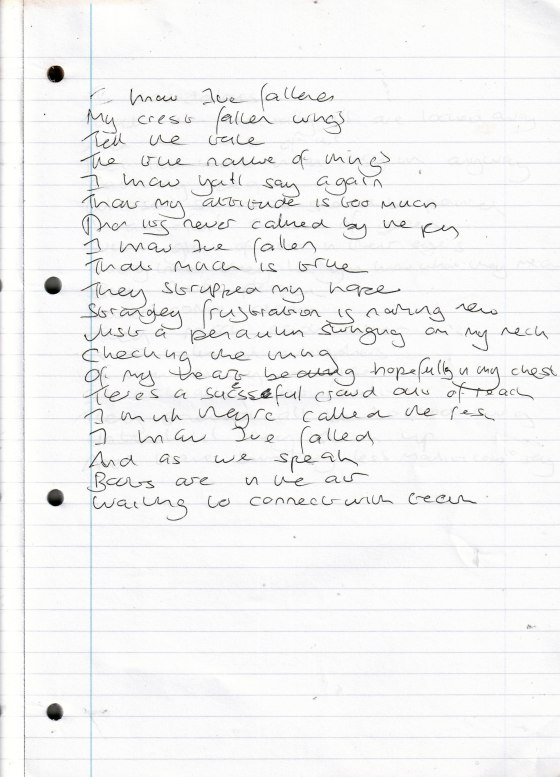 I know I've fallen
My crest fallen wings
Tell the tale
The true nature of things
I know you'll say again
That my attitude is too much
And its never calmed by the
I know I've fallen
That much is true
They stripped my hope
Strangely frustration is nothing new
Just a pendulum swinging on my neck
Checking the timing
Of my heart beating hopefully in my chest
There's a sucssesful crowd out of reach
I think they're called the rest
I know I've failed
And as we speak
Boots are in the air
Waiting to connect with teeth